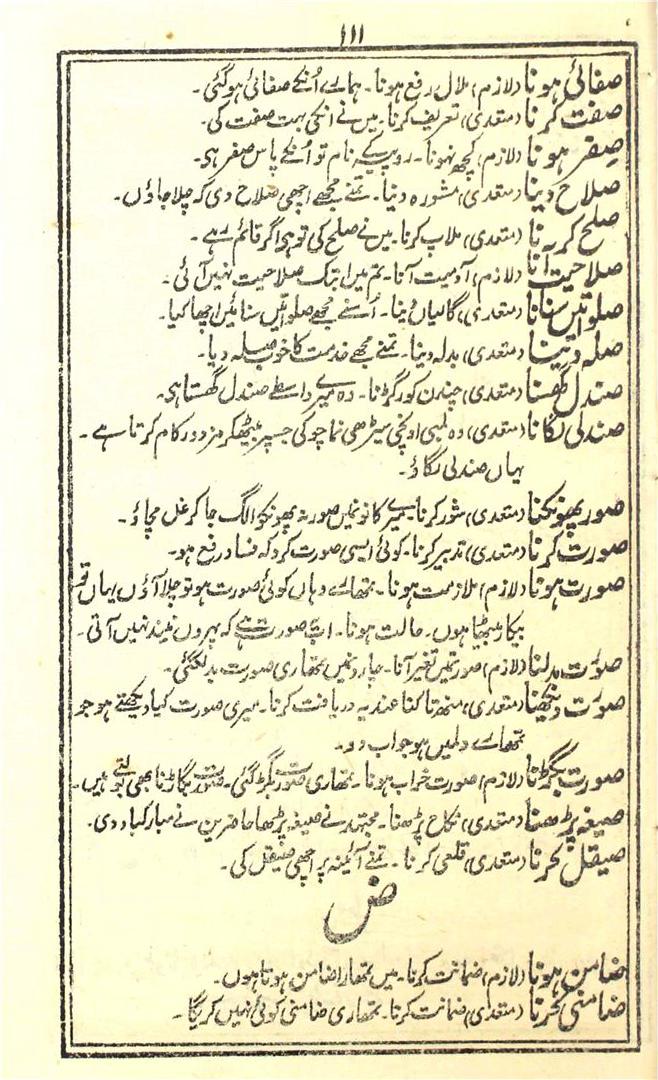 ۱۱۱
صفائی ہونا (لازم) ملال رفع ہونا۔ ہمارے اُنکے صفائی ہوگئی۔
صفت کرنا (متعدی) تعریف کرنا۔ میں نے انکی بہت صفت کی۔
صفر ہونا (لازم) کچھ نہونا۔ روپیہ کے نام تو اُنکے پاس صفر ہی۔
صلاح دینا (متعدی) مشورہ دینا۔ تمنے مجھے اچھی صلاح دی کہ چلا جاؤں۔
صلح کرنا (متعدی) ملاپ کرنا۔ میں نے صلح کی تو ہی اگر قائم رہے۔
صلاحیت آنا (لازم) آدمیت آنا۔ تم میں ابتک صلاحیت نہیں آئی۔
صلواتیں سنانا (متعدی) گالیاں دینا۔ اُسنے مجھے صلواتیں سنائیں اچھا کیا۔
صلہ دینا (متعدی) بدلہ دینا۔ تمنے مجھے خدمت کا خوب صلہ دیا۔
صندل گھسنا (متعدی) چندن کو رگڑنا۔ وہ میرے واسطے صندل گھستا ہی۔
صندلی لگانا (متعدی) وہ لمبی اونچی سیڑھی نما چوکی جسپر بیٹھکر مزدور کام کرتا ہے۔
یہاں صندلی لگاؤ۔
صور پھونکنا (متعدی) شور کرنا۔ میرے کانو نمیں صور نہ پھونکو الگ جا کر غل مچاؤ۔
صورت کرنا (متعدی) تدبیر کرنا۔ کوئی ایسی صورت کرو کہ فساد رفع ہو۔
صورت ہونا (لازم) ملازمت ہونا۔ تمھارے وہاں کوئی صورت ہو تو چلا آؤں یہاں تو
بیکار بیٹھا ہوں۔ حالت ہونا۔ اب صورت یہ ہے کہ پہروں نیند نہیں آتی۔
صورت بدلنا (لازم) صورتمیں تغیر آنا۔ چار دنمیں تمھاری صورت بدلگئی۔
صورت دیکھنا (متعدی) منھ تاکنا عندیہ دریافت کرنا۔ میری صورت کیا دیکھتے ہو جو
تمھارے دلمیں ہو جواب دو۔
صورت بگڑنا (لازم) صورت خراب ہونا۔ تمھاری صورت بگڑ گئی۔ صورت بگاڑنا بھی بولتے ہیں۔
صیغہ پڑھنا (متعدی) نکاح پڑھنا۔ مجتہد نے صیغہ پڑھا حاضرین نے مبارکباد دی۔
صیقل کرنا (متعدی) قلعی کرنا۔ تمنے آئینہ پر اچھی صیقل کی۔
ض
ضامن ہونا (لازم) ضمانت کرنا۔ میں تمھارا ضامن ہوتا ہوں۔
ضامنی کرنا (متعدی) ضمانت کرنا۔ تمھاری ضامنی کوئی نہیں کریگا۔